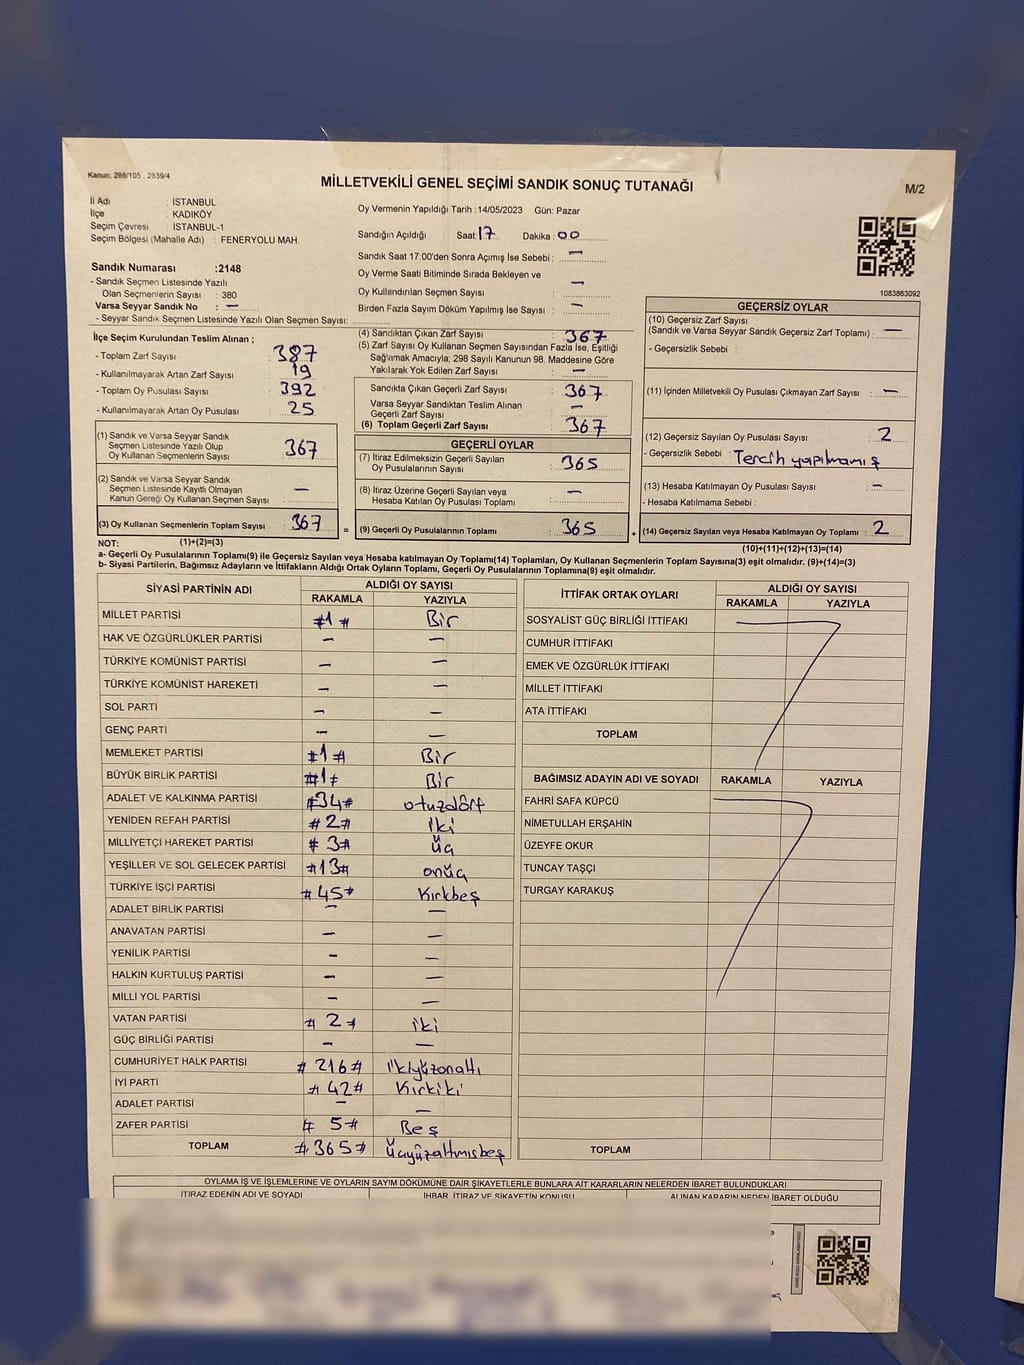 Kanun: 298/105 . 2839/4
MİLLETVEKİLİ GENEL SEÇİMİ SANDIK SONUÇ TUTANAĞI
M/2
İl Adı : İSTANBUL
İlçe : KADIKÖY
Seçim Çevresi : İSTANBUL-1
Seçim Bölgesi (Mahalle Adı) : FENERYOLU MAH.
Oy Vermenin Yapıldığı Tarih :14/05/2023 Gün: Pazar
Sandığın Açıldığı Saat: 17 Dakika : 00
Sandık Saat 17:00'den Sonra Açımış İse Sebebi : —
Oy Verme Saati Bitiminde Sırada Bekleyen ve
Oy Kullandırılan Seçmen Sayısı : —
Birden Fazla Sayım Döküm Yapılmış İse Sayısı : —
Sandık Numarası :2148
- Sandık Seçmen Listesinde Yazılı
Olan Seçmenlerin Sayısı : 380
Varsa Seyyar Sandık No : —
- Seyyar Sandık Seçmen Listesinde Yazılı Olan Seçmen Sayısı:
1083863092
İlçe Seçim Kurulundan Teslim Alınan ;
- Toplam Zarf Sayısı : 387
- Kullanılmayarak Artan Zarf Sayısı : 19
- Toplam Oy Pusulası Sayısı : 392
- Kullanılmayarak Artan Oy Pusulası : 25
(1) Sandık ve Varsa Seyyar Sandık
Seçmen Listesinde Yazılı Olup
Oy Kullanan Seçmenlerin Sayısı : 367
(2) Sandık ve Varsa Seyyar Sandık
Seçmen Listesinde Kayıtlı Olmayan
Kanun Gereği Oy Kullanan Seçmen Sayısı : —
(3) Oy Kullanan Seçmenlerin Toplam Sayısı : 367
(4) Sandıktan Çıkan Zarf Sayısı : 367
(5) Zarf Sayısı Oy Kullanan Seçmen Sayısından Fazla İse, Eşitliği
Sağlamak Amacıyla; 298 Sayılı Kanunun 98. Maddesine Göre
Yakılarak Yok Edilen Zarf Sayısı : —
Sandıkta Çıkan Geçerli Zarf Sayısı : 367
Varsa Seyyar Sandıktan Teslim Alınan
Geçerli Zarf Sayısı : —
(6) Toplam Geçerli Zarf Sayısı : 367
GEÇERLİ OYLAR
(7) İtiraz Edilmeksizin Geçerli Sayılan
Oy Pusulalarının Sayısı : 365
(8) İtiraz Üzerine Geçerli Sayılan veya
Hesaba Katılan Oy Pusulası Toplamı : —
= (9) Geçerli Oy Pusulalarının Toplamı : 365
GEÇERSİZ OYLAR
(10) Geçersiz Zarf Sayısı
(Sandık ve Varsa Seyyar Sandık Geçersiz Zarf Toplamı) : —
- Geçersizlik Sebebi :
(11) İçinden Milletvekili Oy Pusulası Çıkmayan Zarf Sayısı : —
(12) Geçersiz Sayılan Oy Pusulası Sayısı : 2
- Geçersizlik Sebebi : Tercih yapılmamış
(13) Hesaba Katılmayan Oy Pusulası Sayısı : —
- Hesaba Katılmama Sebebi :
+ (14) Geçersiz Sayılan veya Hesaba Katılmayan Oy Toplamı : 2
NOT: (1)+(2)=(3)
(10)+(11)+(12)+(13)=(14)
a- Geçerli Oy Pusulalarının Toplamı(9) ile Geçersiz Sayılan veya Hesaba katılmayan Oy Toplamı(14) Toplamları, Oy Kullanan Seçmenlerin Toplam Sayısına(3) eşit olmalıdır. (9)+(14)=(3)
b- Siyasi Partilerin, Bağımsız Adayların ve İttifakların Aldığı Ortak Oyların Toplamı, Geçerli Oy Pusulalarının Toplamına(9) eşit olmalıdır.
SİYASİ PARTİNİN ADI ALDIĞI OY SAYISI
RAKAMLA YAZIYLA
MİLLET PARTİSİ #1# Bir
HAK VE ÖZGÜRLÜKLER PARTİSİ — —
TÜRKİYE KOMÜNİST PARTİSİ — —
TÜRKİYE KOMÜNİST HAREKETİ — —
SOL PARTİ — —
GENÇ PARTİ — —
MEMLEKET PARTİSİ #1# Bir
BÜYÜK BİRLİK PARTİSİ #1# Bir
ADALET VE KALKINMA PARTİSİ #34# otuzdört
YENİDEN REFAH PARTİSİ #2# iki
MİLLİYETÇİ HAREKET PARTİSİ #3# üç
YEŞİLLER VE SOL GELECEK PARTİSİ #13# onüç
TÜRKİYE İŞÇİ PARTİSİ #45# Kırkbeş
ADALET BİRLİK PARTİSİ — —
ANAVATAN PARTİSİ — —
YENİLİK PARTİSİ — —
HALKIN KURTULUŞ PARTİSİ — —
MİLLİ YOL PARTİSİ — —
VATAN PARTİSİ #2# iki
GÜÇ BİRLİĞİ PARTİSİ — —
CUMHURİYET HALK PARTİSİ #216# ikiyüzonaltı
İYİ PARTİ #42# Kırkiki
ADALET PARTİSİ — —
ZAFER PARTİSİ #5# Beş
TOPLAM #365# üçyüzaltmışbeş
İTTİFAK ORTAK OYLARI ALDIĞI OY SAYISI
RAKAMLA YAZIYLA
SOSYALİST GÜÇ BİRLİĞİ İTTİFAKI
CUMHUR İTTİFAKI
EMEK VE ÖZGÜRLÜK İTTİFAKI
MİLLET İTTİFAKI
ATA İTTİFAKI
TOPLAM
BAĞIMSIZ ADAYIN ADI VE SOYADI RAKAMLA YAZIYLA
FAHRİ SAFA KÜPCÜ
NİMETULLAH ERŞAHİN
ÜZEYFE OKUR
TUNCAY TAŞÇI
TURGAY KARAKUŞ
TOPLAM
OYLAMA İŞ VE İŞLEMLERİNE VE OYLARIN SAYIM DÖKÜMÜNE DAİR ŞİKAYETLERLE BUNLARA AİT KARARLARIN NELERDEN İBARET BULUNDUKLARI
İTİRAZ EDENİN ADI VE SOYADI İHBAR, İTİRAZ VE ŞİKAYETİN KONUSU ALINAN KARARIN NEDEN İBARET OLDUĞU